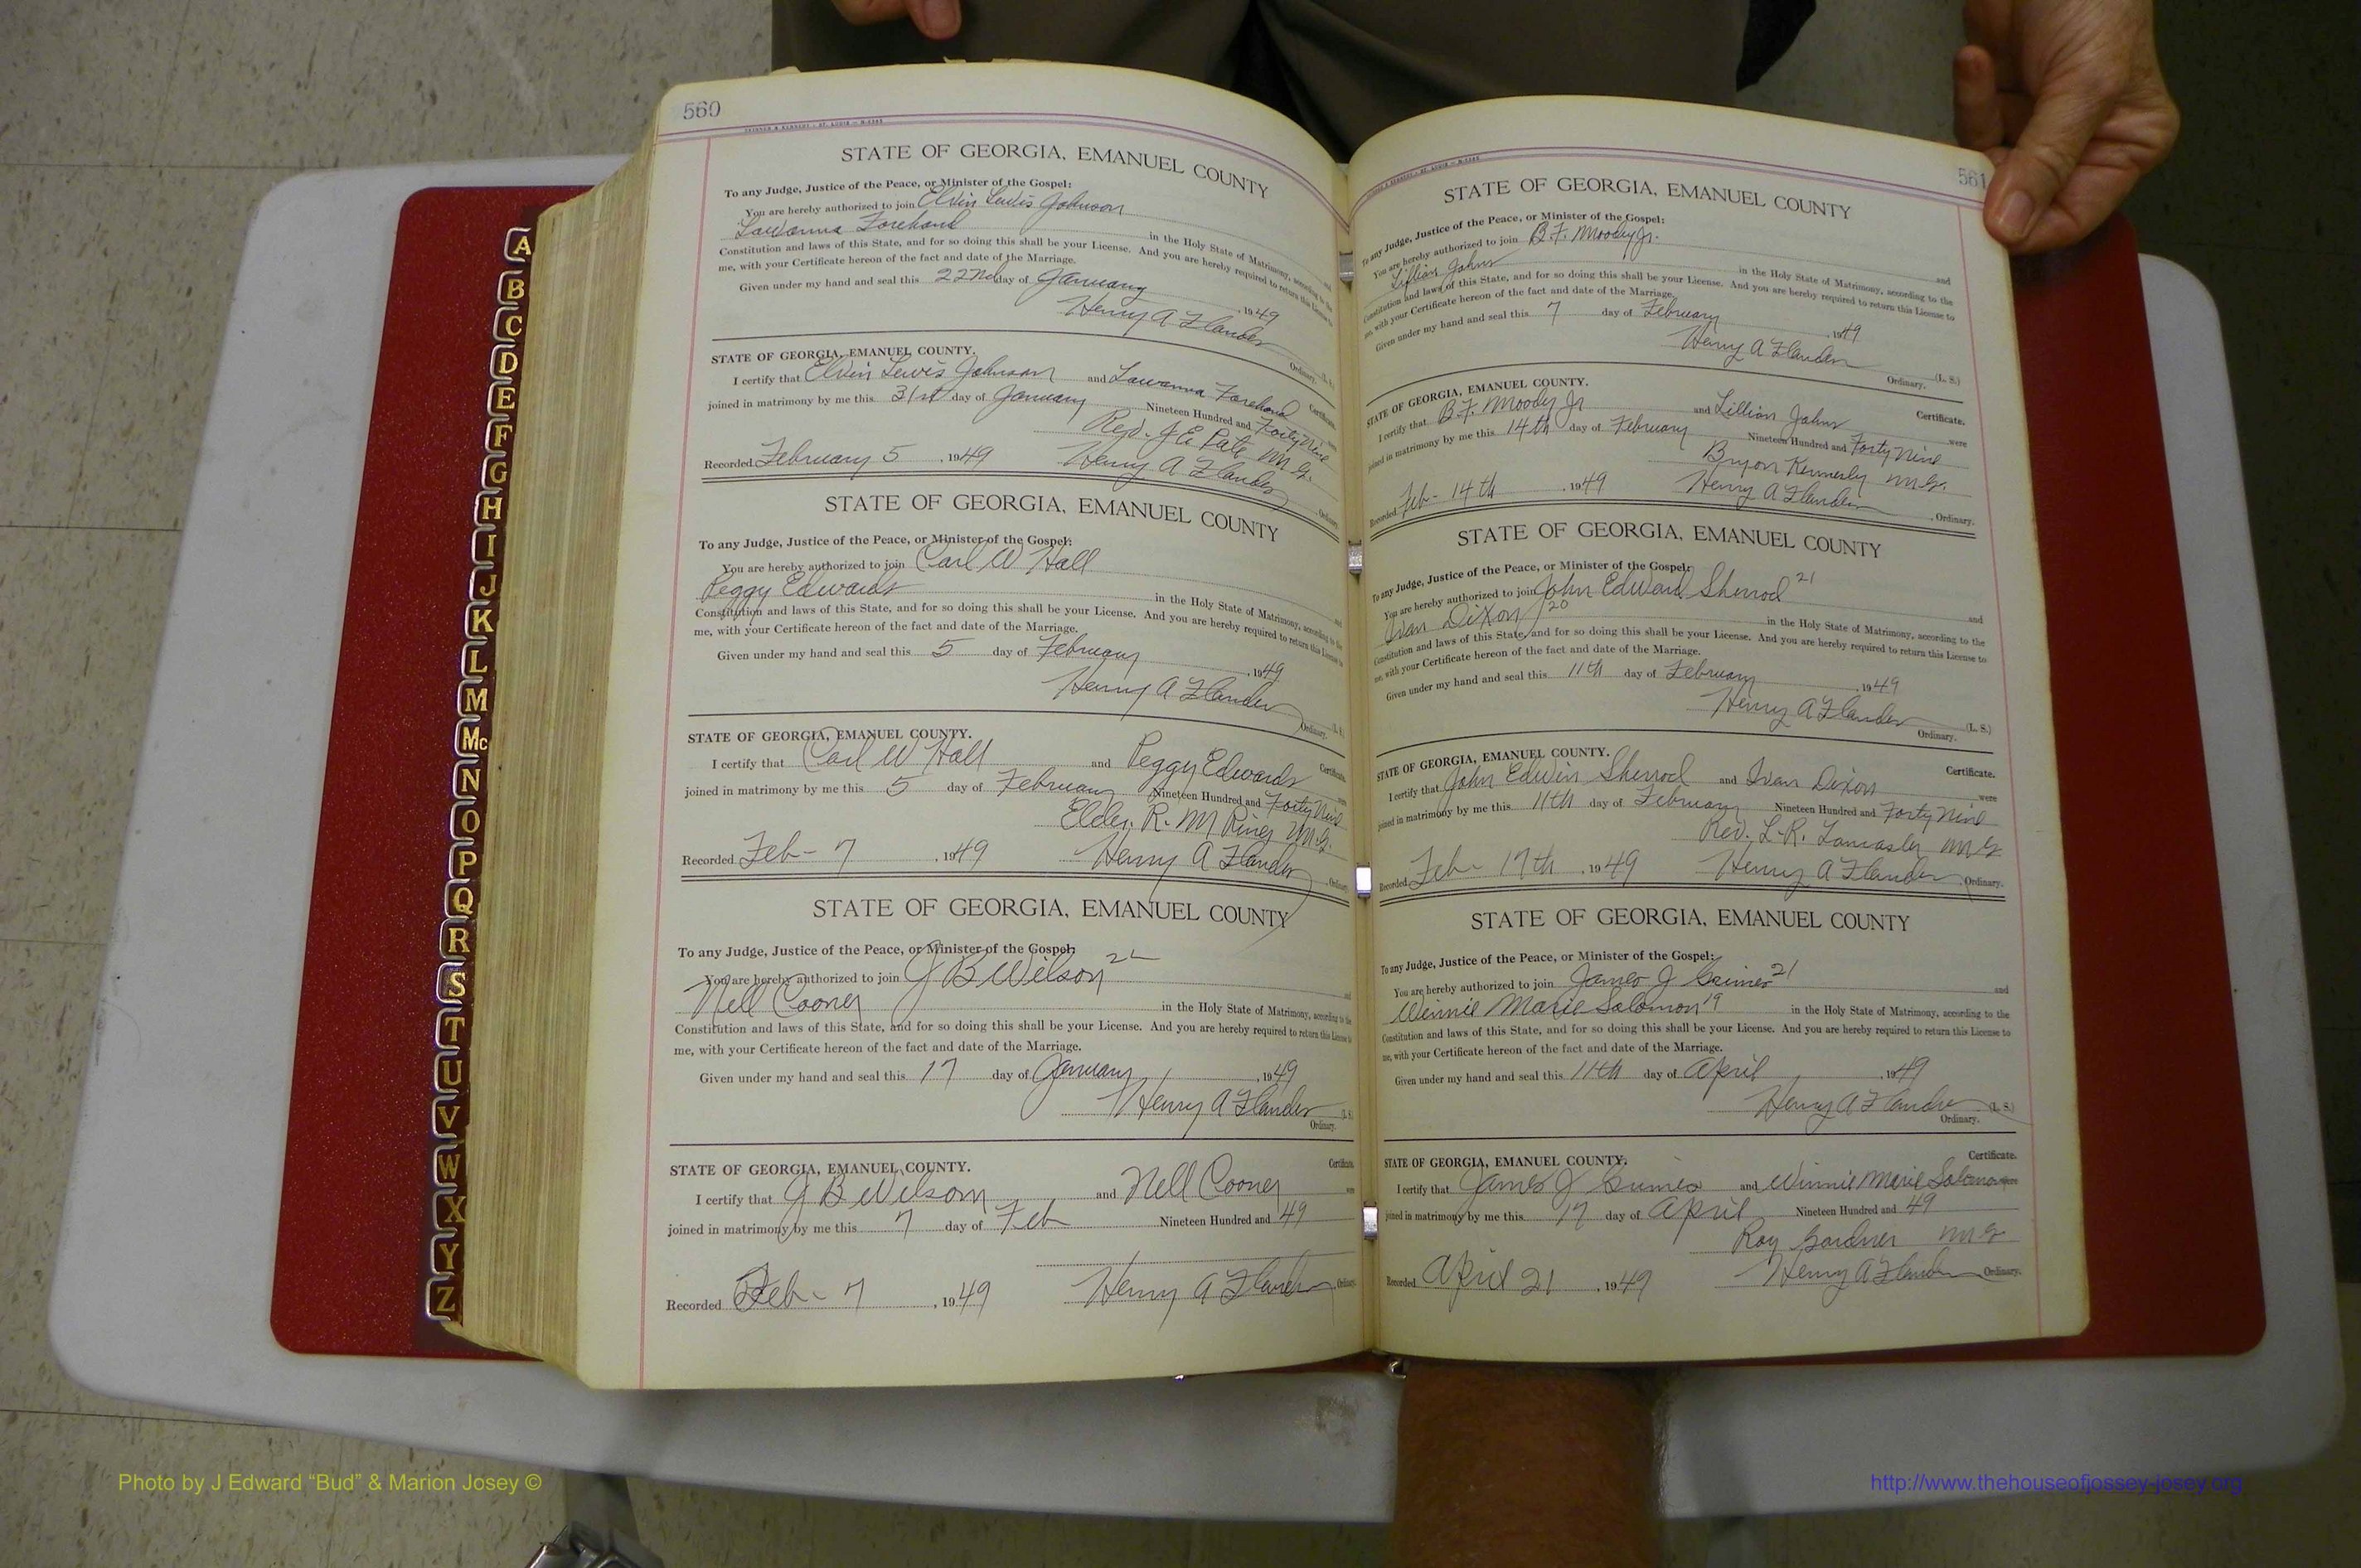 560
STATE OF GEORGIA, EMANUEL COUNTY
To any Judge, Justice of the Peace, or Minister of the Gospel:
You are hereby authorized to join Elvin Lewis Johnson
and
Lawanna Forehand in the Holy State of Matrimony, according to the
Constitution and laws of this State, and for so doing this shall be your License. And you are hereby required to return this License to
me, with your Certificate hereon of the fact and date of the Marriage.
Given under my hand and seal this 22nd day of January, 1949
Henry A Flanders (L. S.)
Ordinary.
STATE OF GEORGIA, EMANUEL COUNTY. Certificate.
I certify that Elvin Lewis Johnson and Lawanna Forehand were
joined in matrimony by me this 31st day of January Nineteen Hundred and Forty Nine
Rev. J E Pate M G.
Recorded February 5, 1949 Henry A Flanders, Ordinary.
STATE OF GEORGIA, EMANUEL COUNTY
To any Judge, Justice of the Peace, or Minister of the Gospel:
You are hereby authorized to join Carl W Hall
and
Peggy Edwards in the Holy State of Matrimony, according to the
Constitution and laws of this State, and for so doing this shall be your License. And you are hereby required to return this License to
me, with your Certificate hereon of the fact and date of the Marriage.
Given under my hand and seal this 5 day of February, 1949
Henry A Flanders (L. S.)
Ordinary.
STATE OF GEORGIA, EMANUEL COUNTY. Certificate.
I certify that Carl W Hall and Peggy Edwards were
joined in matrimony by me this 5 day of February Nineteen Hundred and Forty Nine
Elder. R. M Riner M.G.
Recorded Feb- 7, 1949 Henry A Flanders, Ordinary.
STATE OF GEORGIA, EMANUEL COUNTY
To any Judge, Justice of the Peace, or Minister of the Gospel:
You are hereby authorized to join J B Wilson 22
and
Nell Cooner in the Holy State of Matrimony, according to the
Constitution and laws of this State, and for so doing this shall be your License. And you are hereby required to return this License to
me, with your Certificate hereon of the fact and date of the Marriage.
Given under my hand and seal this 17 day of January, 1949
Henry A Flanders (L. S.)
Ordinary.
STATE OF GEORGIA, EMANUEL COUNTY. Certificate.
I certify that J B Wilson and Nell Cooner were
joined in matrimony by me this 7 day of Feb Nineteen Hundred and 49
Recorded Feb- 7, 1949 Henry A Flanders, Ordinary.
561
STATE OF GEORGIA, EMANUEL COUNTY
To any Judge, Justice of the Peace, or Minister of the Gospel:
You are hereby authorized to join B.F. Moody Jr.
and
Lillian Johns in the Holy State of Matrimony, according to the
Constitution and laws of this State, and for so doing this shall be your License. And you are hereby required to return this License to
me, with your Certificate hereon of the fact and date of the Marriage.
Given under my hand and seal this 7 day of February, 1949
Henry A Flanders (L. S.)
Ordinary.
STATE OF GEORGIA, EMANUEL COUNTY. Certificate.
I certify that B.F. Moody Jr and Lillian Johns were
joined in matrimony by me this 14th day of February Nineteen Hundred and Forty Nine
Bryon Kennerly M.G.
Recorded Feb- 14th, 1949 Henry A Flanders, Ordinary.
STATE OF GEORGIA, EMANUEL COUNTY
To any Judge, Justice of the Peace, or Minister of the Gospel:
You are hereby authorized to join John Edward Sherrod 21
and
Ivan Dixon 20 in the Holy State of Matrimony, according to the
Constitution and laws of this State, and for so doing this shall be your License. And you are hereby required to return this License to
me, with your Certificate hereon of the fact and date of the Marriage.
Given under my hand and seal this 11th day of February, 1949
Henry A Flanders (L. S.)
Ordinary.
STATE OF GEORGIA, EMANUEL COUNTY. Certificate.
I certify that John Edwin Sherrod and Ivan Dixon were
joined in matrimony by me this 11th day of February Nineteen Hundred and Forty Nine
Rev. L.R. Lancaster M G
Recorded Feb- 17th, 1949 Henry A Flanders, Ordinary.
STATE OF GEORGIA, EMANUEL COUNTY
To any Judge, Justice of the Peace, or Minister of the Gospel:
You are hereby authorized to join James J Grimes 21
and
Winnie Marie Solomon 19 in the Holy State of Matrimony, according to the
Constitution and laws of this State, and for so doing this shall be your License. And you are hereby required to return this License to
me, with your Certificate hereon of the fact and date of the Marriage.
Given under my hand and seal this 11th day of April, 1949
Henry A Flanders (L. S.)
Ordinary.
STATE OF GEORGIA, EMANUEL COUNTY. Certificate.
I certify that James J Grimes and Winnie Marie Solomon were
joined in matrimony by me this 17 day of April Nineteen Hundred and 49
Roy Gardner M G
Recorded April 21, 1949 Henry A Flanders, Ordinary.
A
B
C
D
E
F
G
H
I
J
K
L
M
Mc
N
O
P
Q
R
S
T
U
V
W
X
Y
Z
Photo by J Edward “Bud” & Marion Josey ©
http://www.thehouseofjossey-josey.org